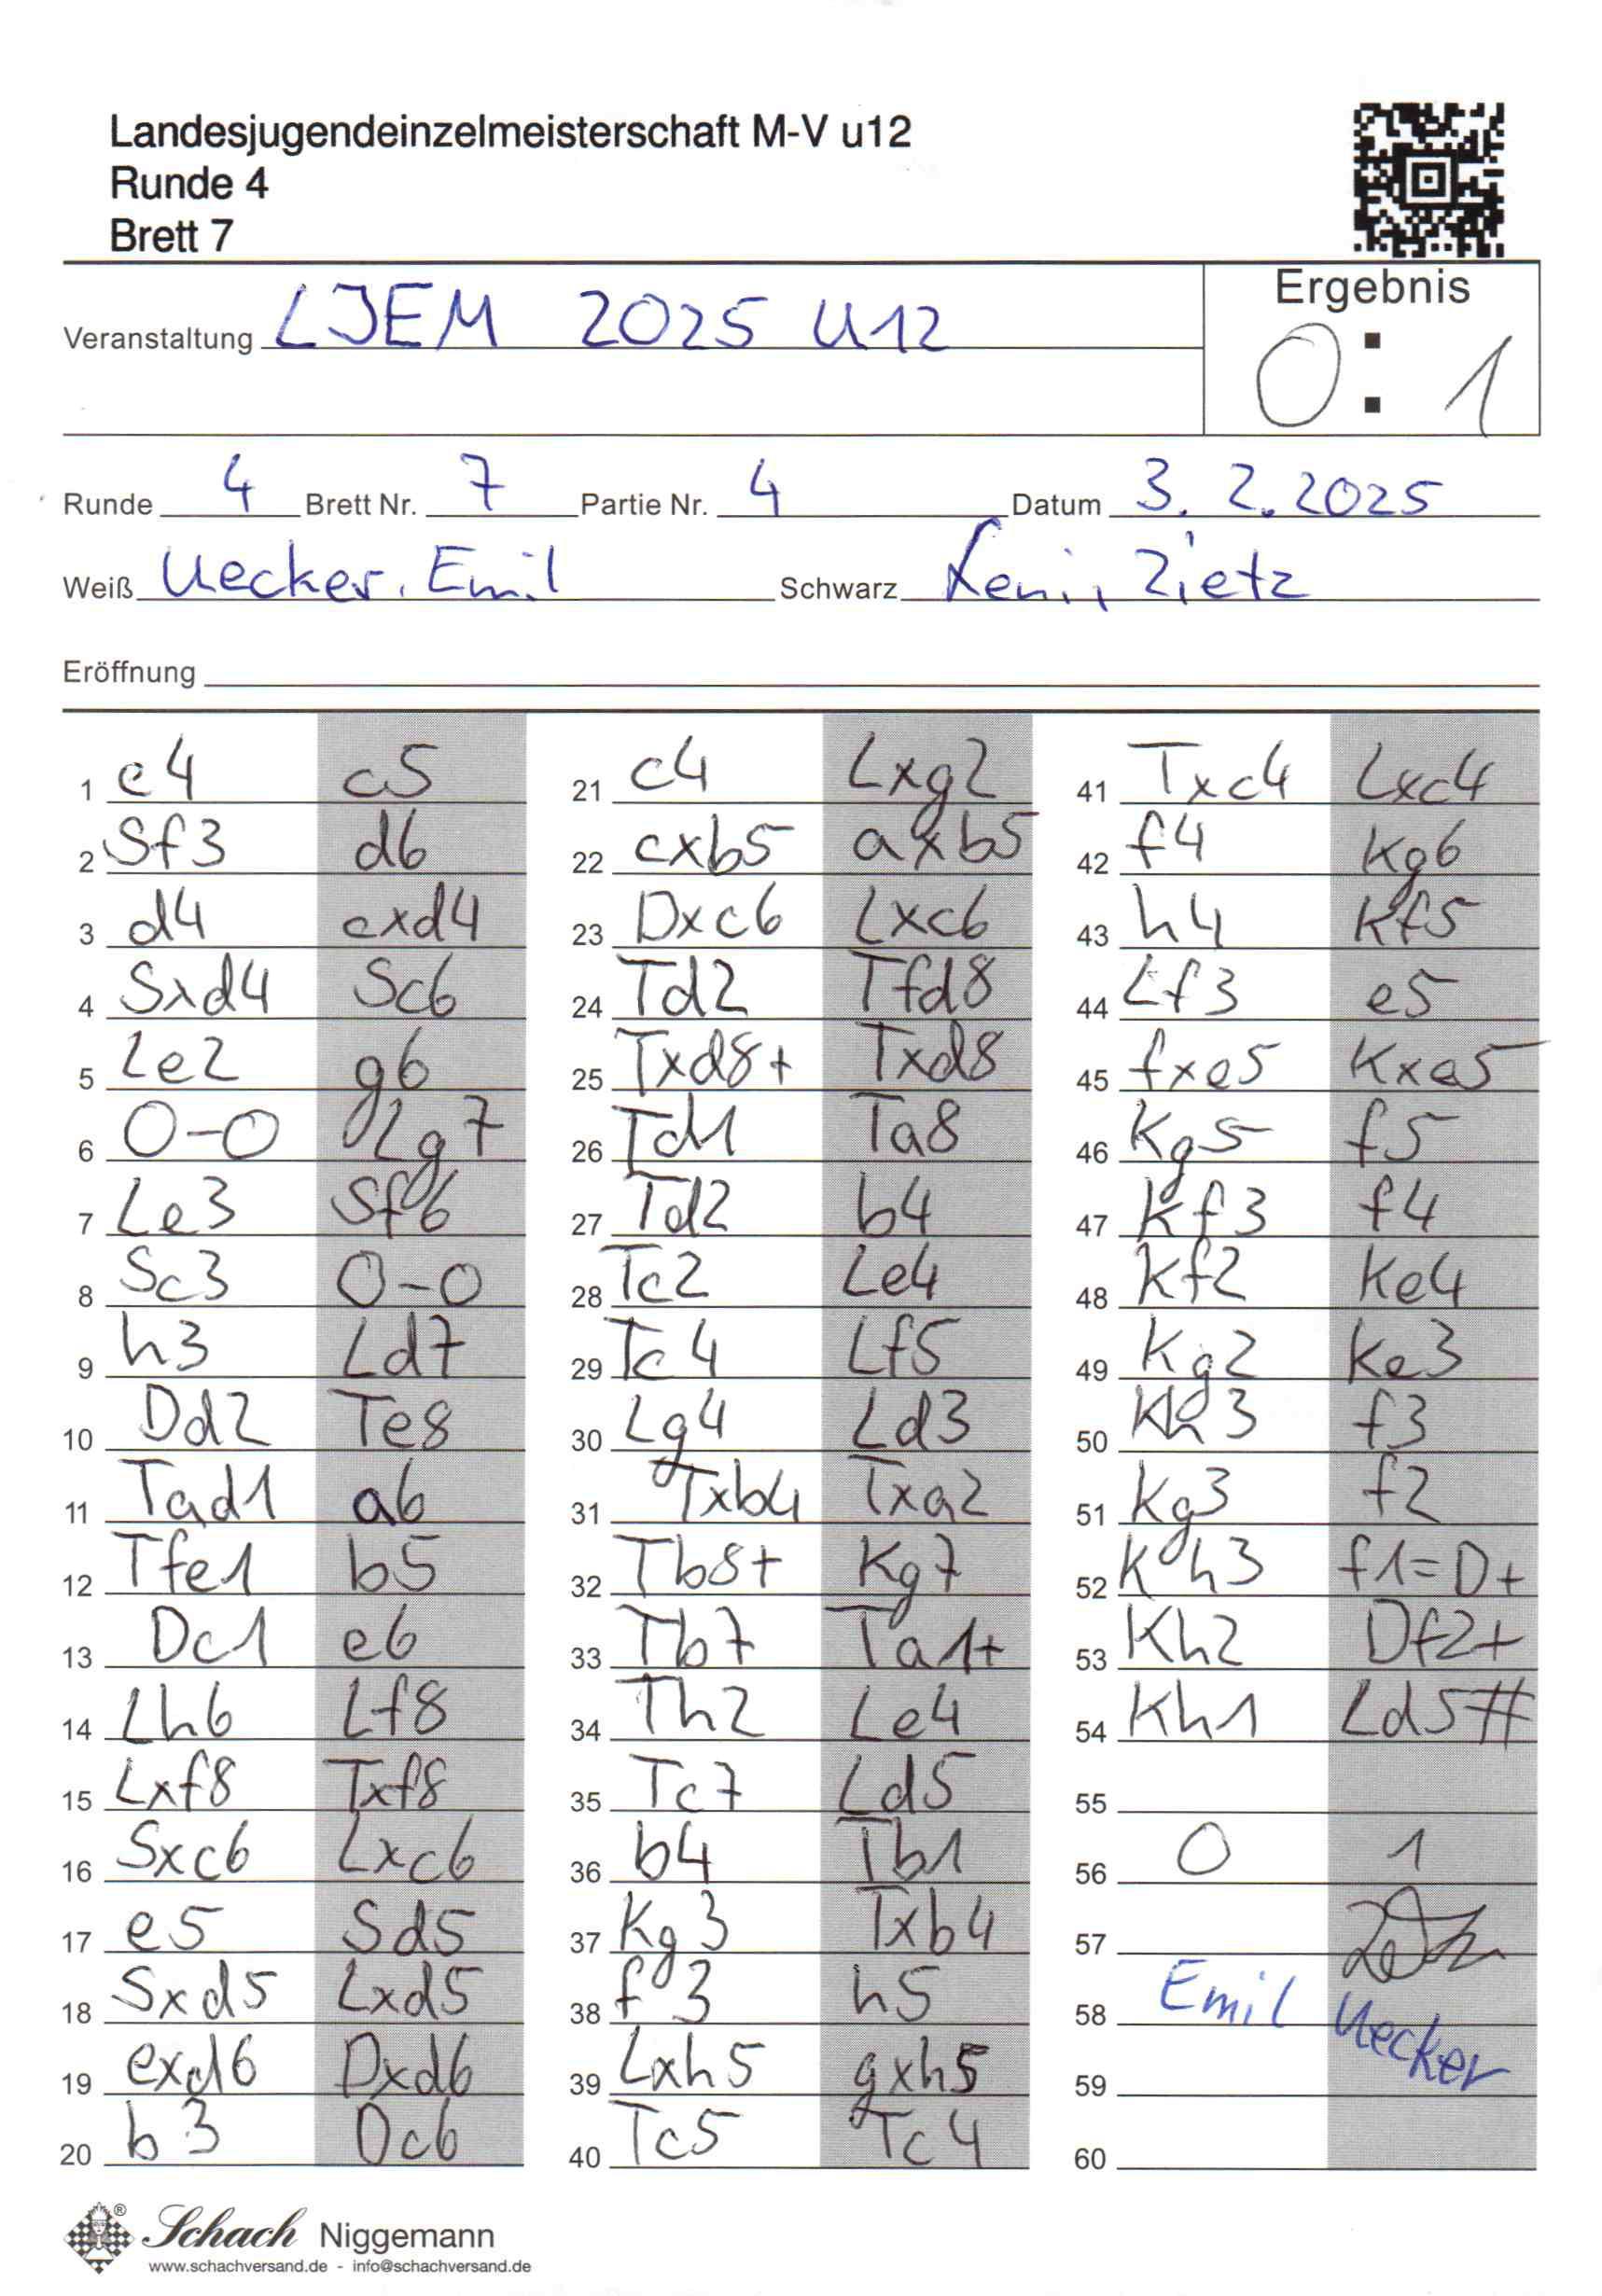 Landesjugendeinzelmeisterschaft M-V u12
Runde 4
Brett 7
Ergebnis
0 : 1
Veranstaltung LJEM 2025 U12
Runde 4 Brett Nr. 7 Partie Nr. 4 Datum 3. 2. 2025
Weiß Uecker, Emil Schwarz Leni, Zietz
Eröffnung
1 e4 c5
2 Sf3 d6
3 d4 cxd4
4 Sxd4 Sc6
5 Le2 g6
6 0-0 Lg7
7 Le3 Sf6
8 Sc3 0-0
9 h3 Ld7
10 Dd2 Te8
11 Tad1 a6
12 Tfe1 b5
13 Dc1 e6
14 Lh6 Lf8
15 Lxf8 Txf8
16 Sxc6 Lxc6
17 e5 Sd5
18 Sxd5 Lxd5
19 exd6 Dxd6
20 b3 Dc6
21 c4 Lxg2
22 cxb5 axb5
23 Dxc6 Lxc6
24 Td2 Tfd8
25 Txd8+ Txd8
26 Td1 Ta8
27 Td2 b4
28 Tc2 Le4
29 Tc4 Lf5
30 Lg4 Ld3
31 Txb4 Txa2
32 Tb8+ Kg7
33 Tb7 Ta1+
34 Th2 Le4
35 Tc7 Ld5
36 b4 Tb1
37 Kg3 Txb4
38 f3 h5
39 Lxh5 gxh5
40 Tc5 Tc4
41 Txc4 Lxc4
42 f4 Kg6
43 h4 Kf5
44 Lf3 e5
45 fxe5 Kxe5
46 Kg5 f5
47 Kf3 f4
48 Kf2 Ke4
49 Kg2 Ke3
50 Kh3 f3
51 Kg3 f2
52 Kh3 f1=D+
53 Kh2 Df2+
54 Kh1 Ld5#
55
56 0 1
57
58 Emil Uecker
59
60
Schach Niggemann
www.schachversand.de - info@schachversand.de